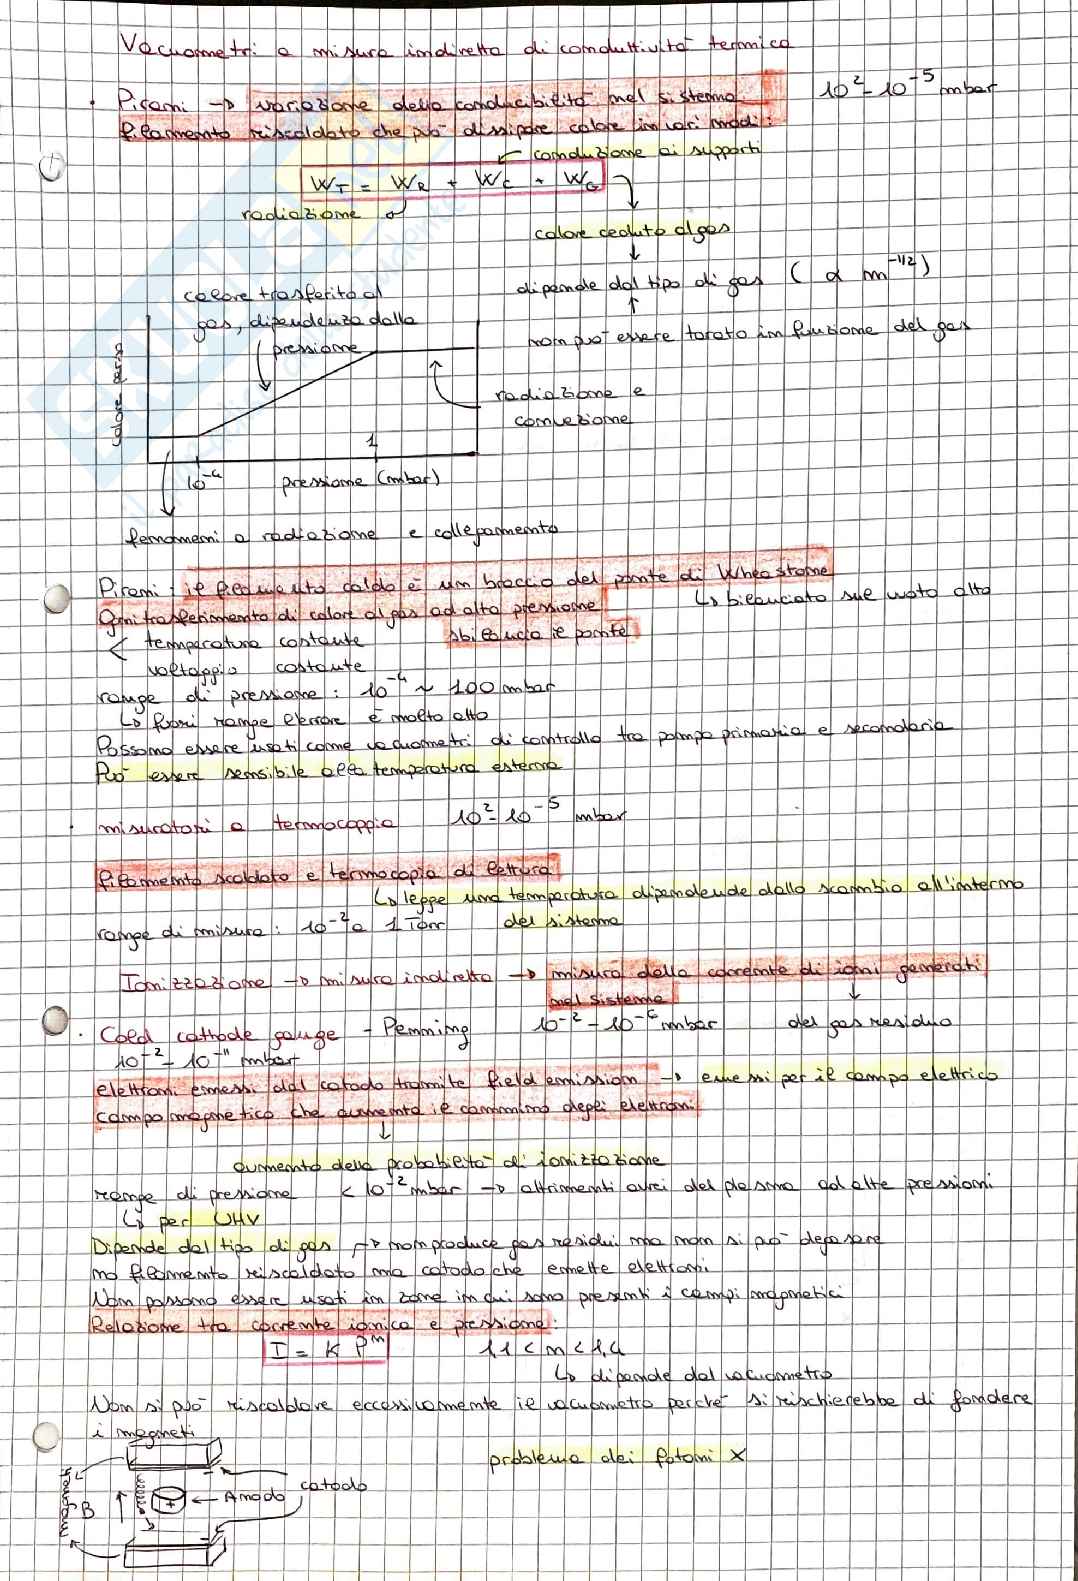 Vacuometri a misura indiretta di conduttività termica
· Pirani → variazione della conducibilità nel sistema 10² - 10⁻⁵ mbar
filamento riscaldato che può dissipare calore in vari modi:
conduzione ai supporti
W_T = W_R + W_C + W_G
radiazione
calore ceduto al gas
dipende dal tipo di gas ( α m^-1/2 )
calore trasferito al
gas, dipendenza dalla
pressione
non può essere tarato in funzione del gas
radiazione e
convezione
calore perso
1
10⁻⁴ pressione (mbar)
fenomeni a radiazione e collegamento
Pirani: il filamento caldo è un braccio del ponte di Wheastone
↳ bilanciato sul vuoto alto
Ogni trasferimento di calore al gas ad alta pressione
sbilancia il ponte
< temperatura costante
voltaggio costante
range di pressione: 10⁻⁴ ~ 100 mbar
↳ fuori range l'errore è molto alto
Possono essere usati come vacuometri di controllo tra pompa primaria e secondaria
Può essere sensibile alla temperatura esterna
· misuratori a termocoppia 10² - 10⁻⁵ mbar
filamento scaldato e termocopia di lettura
↳ legge una temperatura dipendende dallo scambio all'interno
del sistema
range di misura: 10⁻² a 1 Torr
Ionizzazione → misura indiretta → misura della corrente di ioni generati
nel sistema
del gas residuo
· Cold cathode gauge - Penning 10⁻² - 10⁻⁶ mbar
10⁻² - 10⁻¹¹ mbar
elettroni emessi dal catodo tramite field emission → emessi per il campo elettrico
campo magnetico che aumenta il cammino degli elettroni
↓
aumento della probabilità di ionizzazione
range di pressione < 10⁻² mbar → altrimenti avrei del plasma ad alte pressioni
↳ per UHV
Dipende dal tipo di gas → non produce gas residui ma non si può degasare
no filamento riscaldato ma catodo che emette elettroni
Non possono essere usati in zone in cui sono presenti i campi magnetici
Relazione tra corrente ionica e pressione:
I = K Pⁿ 1,1 < n < 1,4
↳ dipende dal vacuometro
Non si può riscaldare eccessivamente il vacuometro perché si rischierebbe di fondere
i magneti
problema dei fotoni X
catodo
Anodo
B
magneti